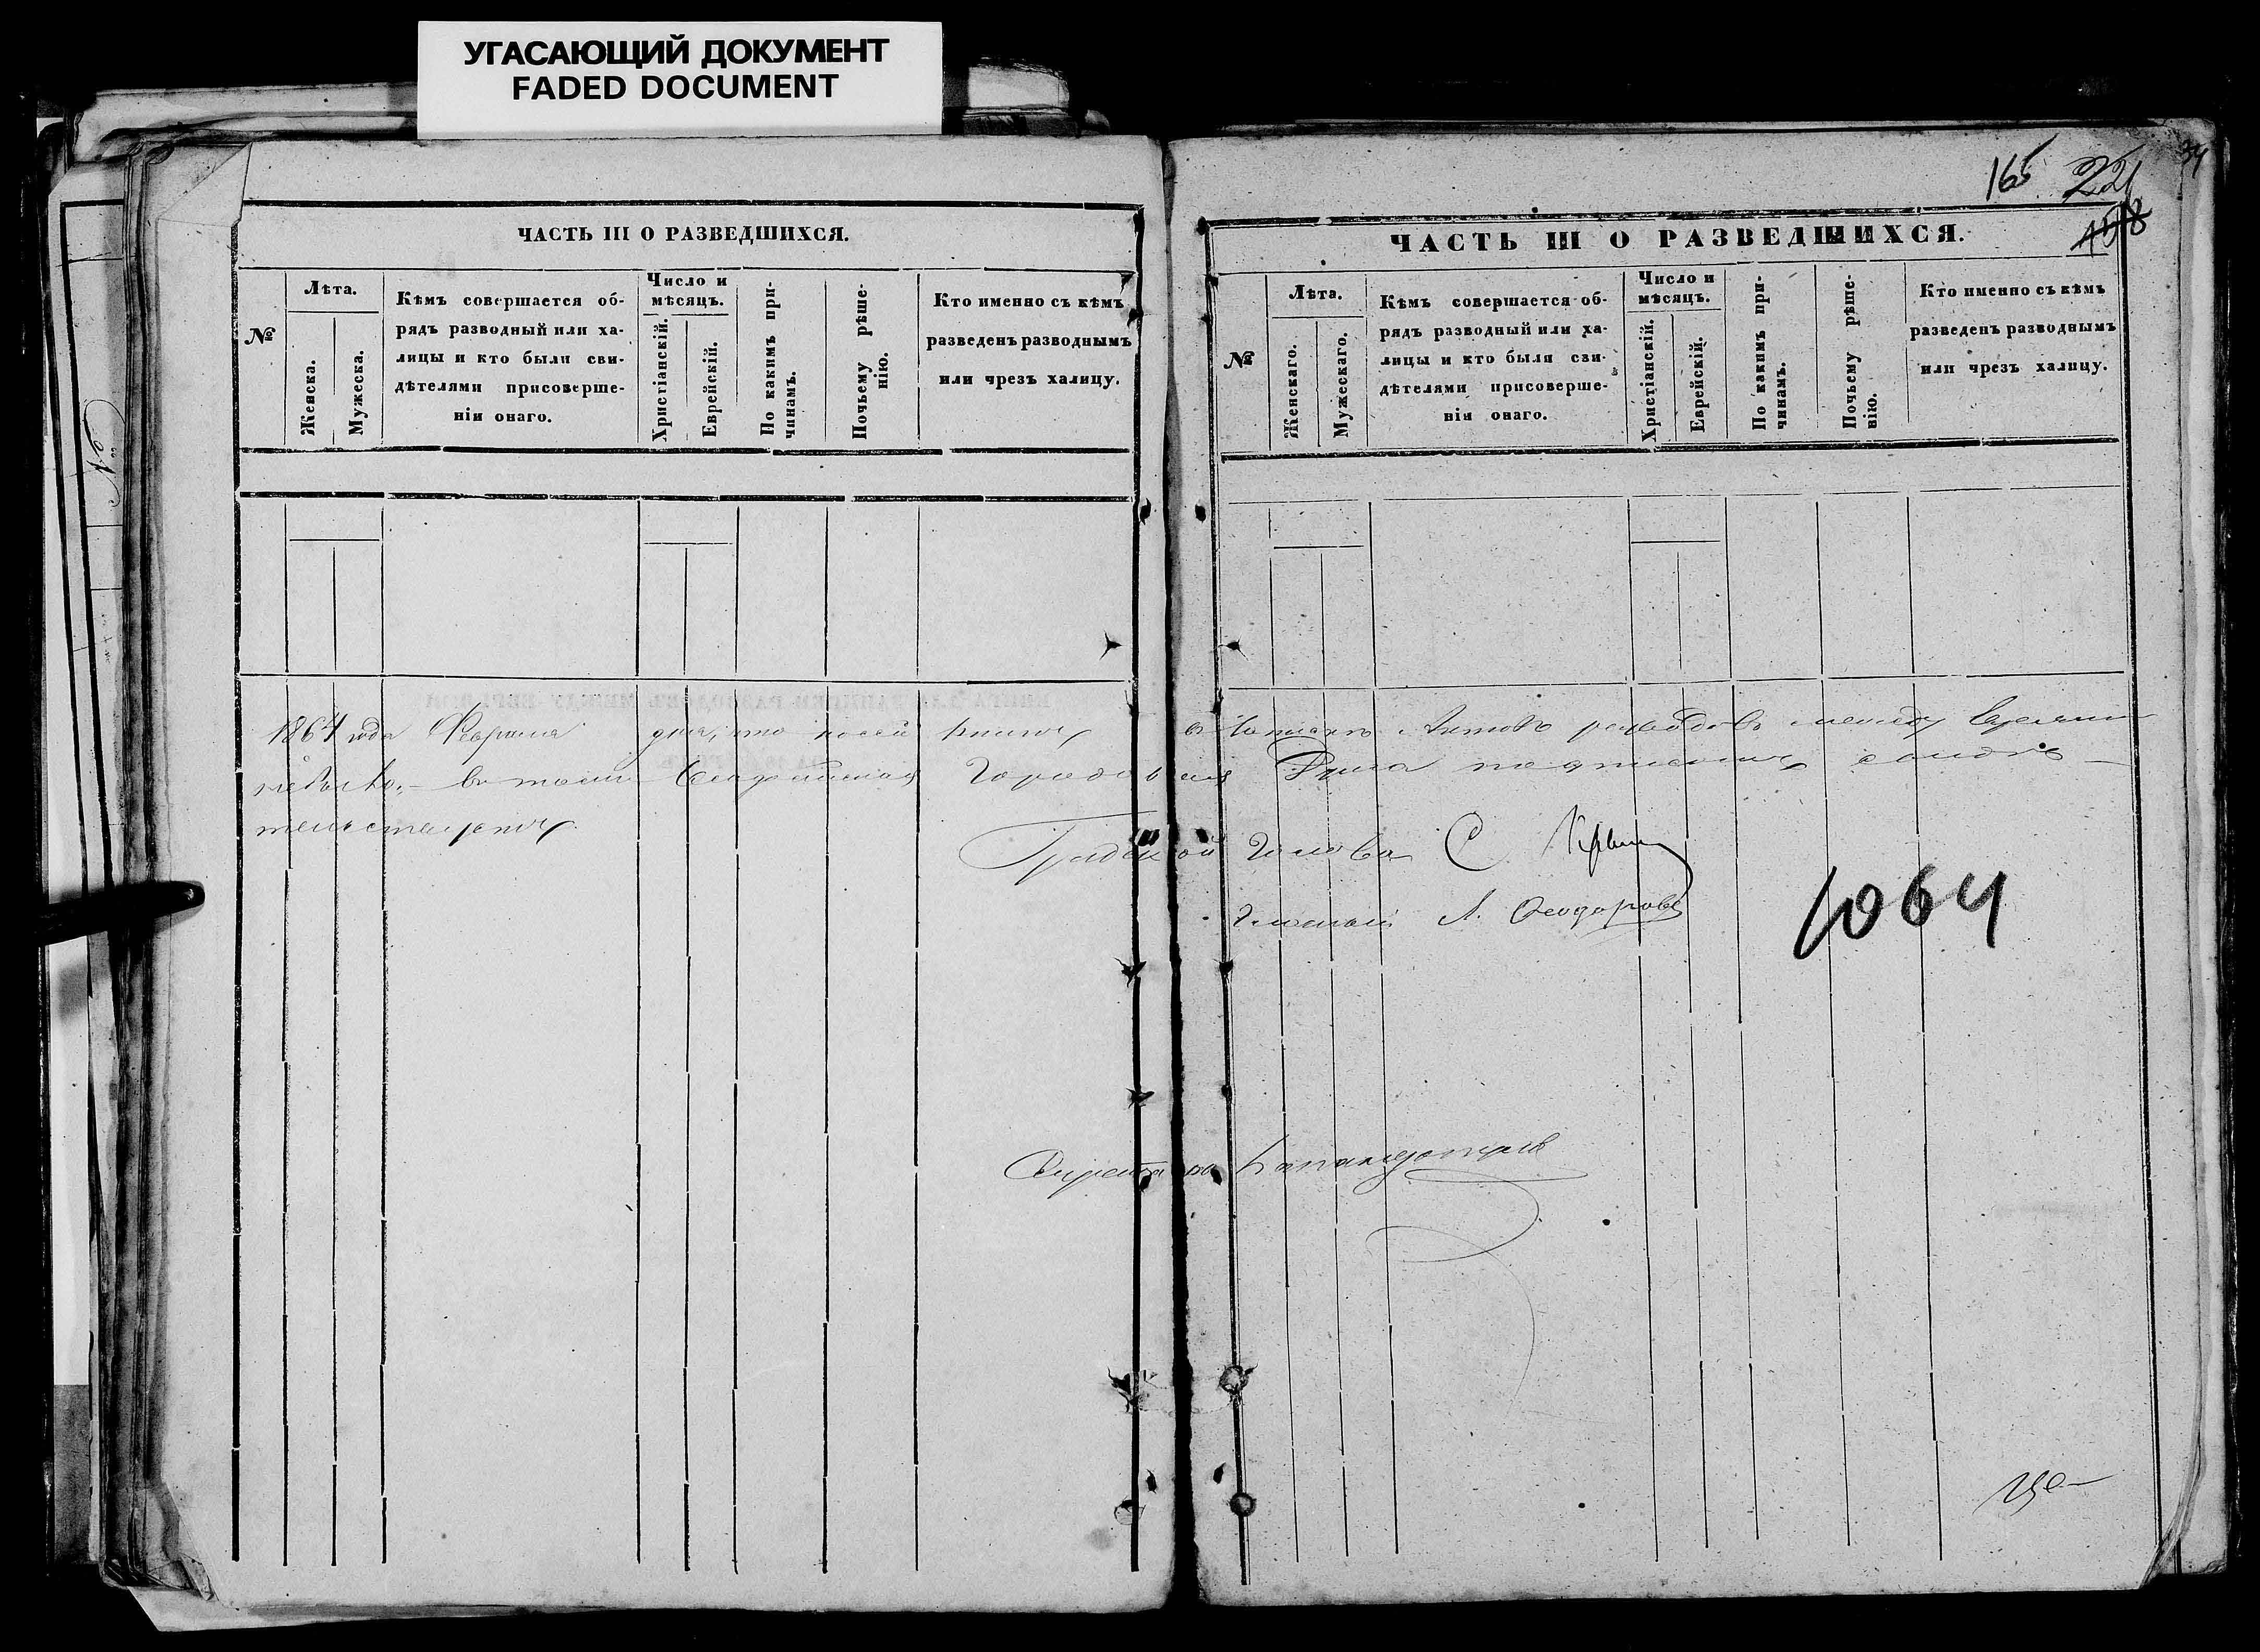 УГАСАЮЩИЙ ДОКУМЕНТ
FADED DOCUMENT
ЧАСТЬ III О РАЗВЕДШИХСЯ.
№
Лѣта.
Женска.
Мужеска.
Кѣмъ совершается об-
рядъ разводный или ха-
лицы и кто были сви-
дѣтелями присоверше-
ніи онаго.
Число и
мѣсяцъ.
Христіанскій.
Еврейскій.
По какимъ при-
чинамъ.
Почьему рѣше-
нію.
Кто именно съ кѣмъ
разведенъ разводнымъ
или чрезъ халицу.
165 221 34
158
ЧАСТЬ III О РАЗВЕДШИХСЯ.
№
Лѣта.
Женскаго.
Мужескаго.
Кѣмъ совершается об-
рядъ разводный или ха-
лицы и кто были сви-
дѣтелями присоверше-
ніи онаго.
Число и
мѣсяцъ.
Христіанскій.
Еврейскій.
По какимъ при-
чинамъ.
Почьему рѣше-
нію.
Кто именно съ кѣмъ
разведенъ разводнымъ
или чрезъ халицу.
1864 года Февраля дня, что по сей книгѣ Актовъ разводовъ между Евреями
не было, въ томъ Городовая Дума подписомъ
Градской Голова С
Гласный А. Феодоровъ
1064